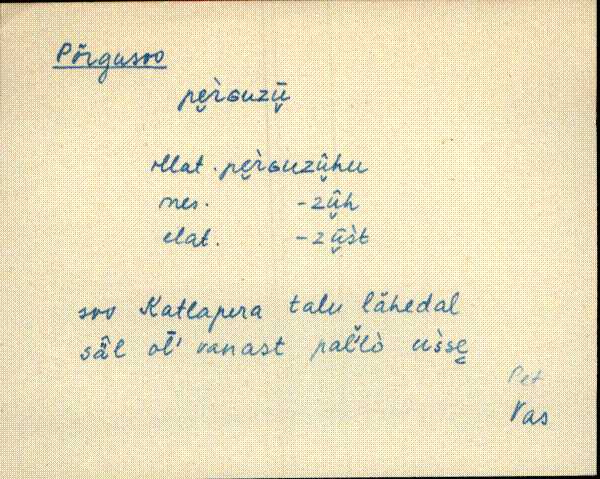 Põrgusoo
pe̮r̀ɢuzū̬
illat. pe̮r̀ɢuzû̬hu
ines. -zû̬h
elat. -zû̬s̀t
soo Katlapera talu lähedal
sä̂l oĺ vanast pal̆'l̀ò us̀se̮
Pet
Vas